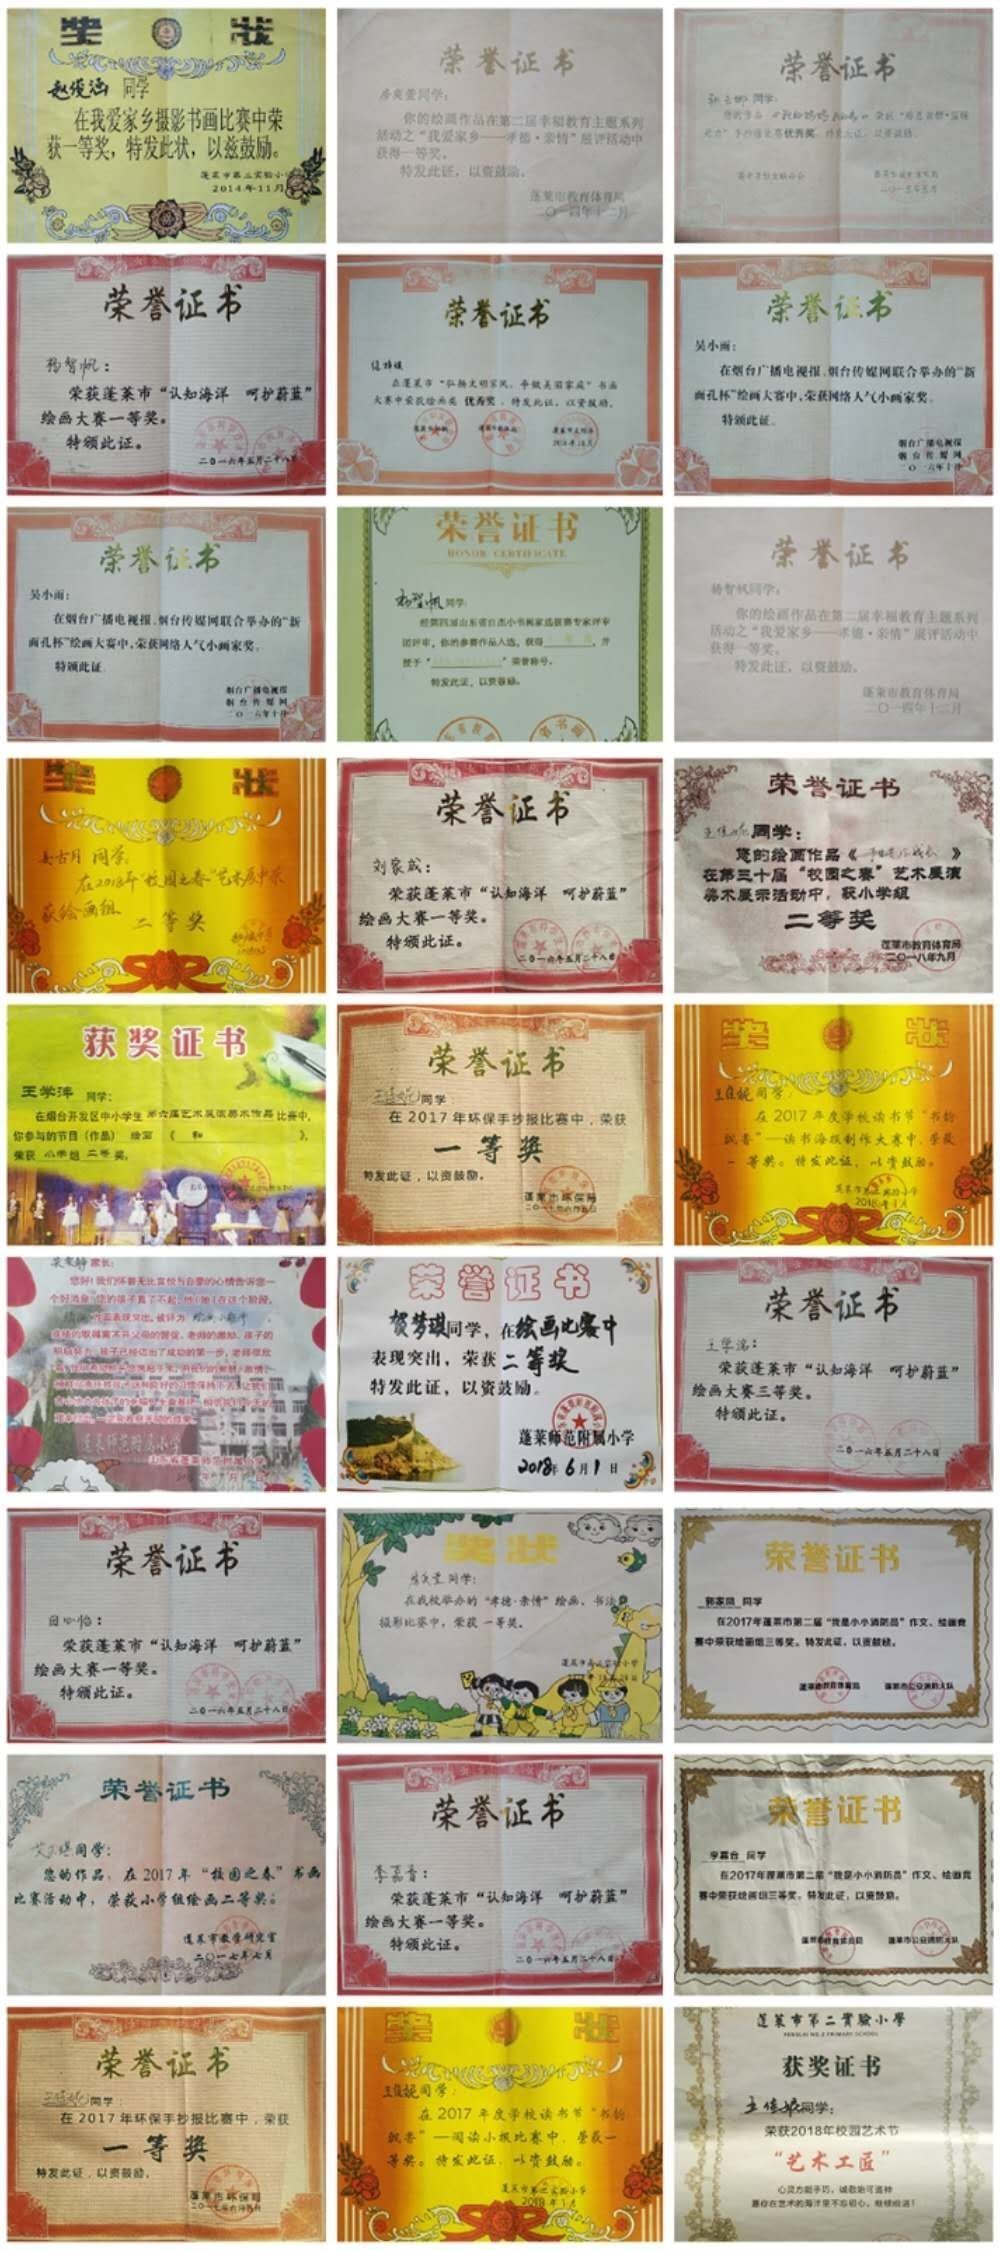 奖状
赵俊涵 同学
在我爱家乡摄影书画比赛中荣
获一等奖，特发此状，以兹鼓励。
蓬莱市第二实验小学
2014年11月
荣誉证书
房奕萱同学：
你的绘画作品在第二届幸福教育主题系列
活动之“我爱家乡——孝德·亲情”展评活动中
获得一等奖。
特发此证，以资鼓励。
蓬莱市教育体育局
二〇一四年十二月
荣誉证书
同学：
优秀奖
荣誉证书
杨智帆：
荣获蓬莱市“认知海洋 呵护蔚蓝”
绘画大赛一等奖。
特颁此证。
二〇一六年五月二十八日
荣誉证书
在蓬莱市“弘扬文明家风、争做美丽家庭”书画
大赛中荣获绘画类 优秀奖 。特发此证，以资鼓励。
荣誉证书
吴小雨：
在烟台广播电视报、烟台传媒网联合举办的“新
面孔杯”绘画大赛中，荣获网络人气小画家奖。
特颁此证。
烟台广播电视报
烟台传媒网
二〇一六年十月
荣誉证书
吴小雨：
在烟台广播电视报、烟台传媒网联合举办的“新
面孔杯”绘画大赛中，荣获网络人气小画家奖。
特颁此证。
烟台广播电视报
烟台传媒网
二〇一六年十月
荣誉证书
HONOR CERTIFICATE
杨智帆 同学：
经第四届山东省百杰小书画家选拔赛专家评审
团评审，你的参赛作品入选，获得 ，并
授予“ ”荣誉称号。
特发此证，以资鼓励。
荣誉证书
杨智帆同学：
你的绘画作品在第二届幸福教育主题系列
活动之“我爱家乡——孝德·亲情”展评活动中
获得一等奖。
特发此证，以资鼓励。
蓬莱市教育体育局
二〇一四年十二月
奖状
同学：
在2018年“校园之春”艺术展中荣
获绘画组
二等奖
荣誉证书
刘家成：
荣获蓬莱市“认知海洋 呵护蔚蓝”
绘画大赛一等奖。
特颁此证。
二〇一六年五月二十八日
荣誉证书
王佳妮同学：
您的绘画作品《 》
在第三十届“校园之春”艺术展演
美术展示活动中，获小学组
二等奖
蓬莱市教育体育局
二〇一八年九月
获奖证书
王学沣 同学：
在烟台开发区中小学生第六届艺术展演美术作品比赛中，
你参与的节目（作品） 绘画 《 和 》，
荣获 小学组 二等 奖。
荣誉证书
王佳妮同学：
在2017年环保手抄报比赛中，荣获
一等奖
特发此证，以资鼓励。
蓬莱市环保局
二〇一七年六月五日
奖状
王佳妮同学：
在2017年度学校读书节“书韵
飘香”——读书海报制作大赛中，荣获
一等奖。特发此证，以资鼓励。
蓬莱市第二实验小学
2018年1月
家长：
您好！我们怀着无比喜悦与自豪的心情告诉您一
个好消息：您的孩子真了不起，他（她）在这个阶段，
蓬莱师范附属小学
荣誉证书
贺梦琪同学，在绘画比赛中
表现突出，荣获二等奖
特发此证，以资鼓励。
蓬莱师范附属小学
2018年6月1日
荣誉证书
荣获蓬莱市“认知海洋 呵护蔚蓝”
绘画大赛三等奖。
特颁此证。
二〇一六年五月二十八日
荣誉证书
田心怡：
荣获蓬莱市“认知海洋 呵护蔚蓝”
绘画大赛一等奖。
特颁此证。
二〇一六年五月二十八日
奖状
房奕萱同学：
在我校举办的“孝德·亲情”绘画、书法、
摄影比赛中，荣获一等奖。
蓬莱市第二实验小学
荣誉证书
郭家凤 同学
在2017年蓬莱市第二届“我是小小消防员”作文、绘画竞
赛中荣获绘画组三等奖。特发此证，以资鼓励。
蓬莱市教育体育局 蓬莱市公安消防大队
荣誉证书
同学：
您的作品，在2017年“校园之春”书画
比赛活动中，荣获小学组绘画二等奖。
蓬莱市教学研究室
二〇一七年七月
荣誉证书
李嘉音：
荣获蓬莱市“认知海洋 呵护蔚蓝”
绘画大赛一等奖。
特颁此证。
二〇一六年五月二十八日
荣誉证书
同学
在2017年蓬莱市第二届“我是小小消防员”作文、绘画竞
赛中荣获绘画组三等奖。特发此证，以资鼓励。
蓬莱市教育体育局 蓬莱市公安消防大队
荣誉证书
王佳妮同学：
在2017年环保手抄报比赛中，荣获
一等奖
特发此证，以资鼓励。
蓬莱市环保局
二〇一七年六月五日
奖状
王佳妮同学：
在2017年度学校读书节“书韵
飘香”——阅读小报比赛中，荣获一
等奖。特发此证，以资鼓励。
蓬莱市第二实验小学
2018年1月
蓬莱市第二實驗小學
PENGLAI NO.2 PRIMARY SCHOOL
获奖证书
王佳妮同学：
荣获2018年校园艺术节
“艺术工匠”
心灵方能手巧，诚敬始可道神
愿你在艺术的海洋里不忘初心，继续前进！